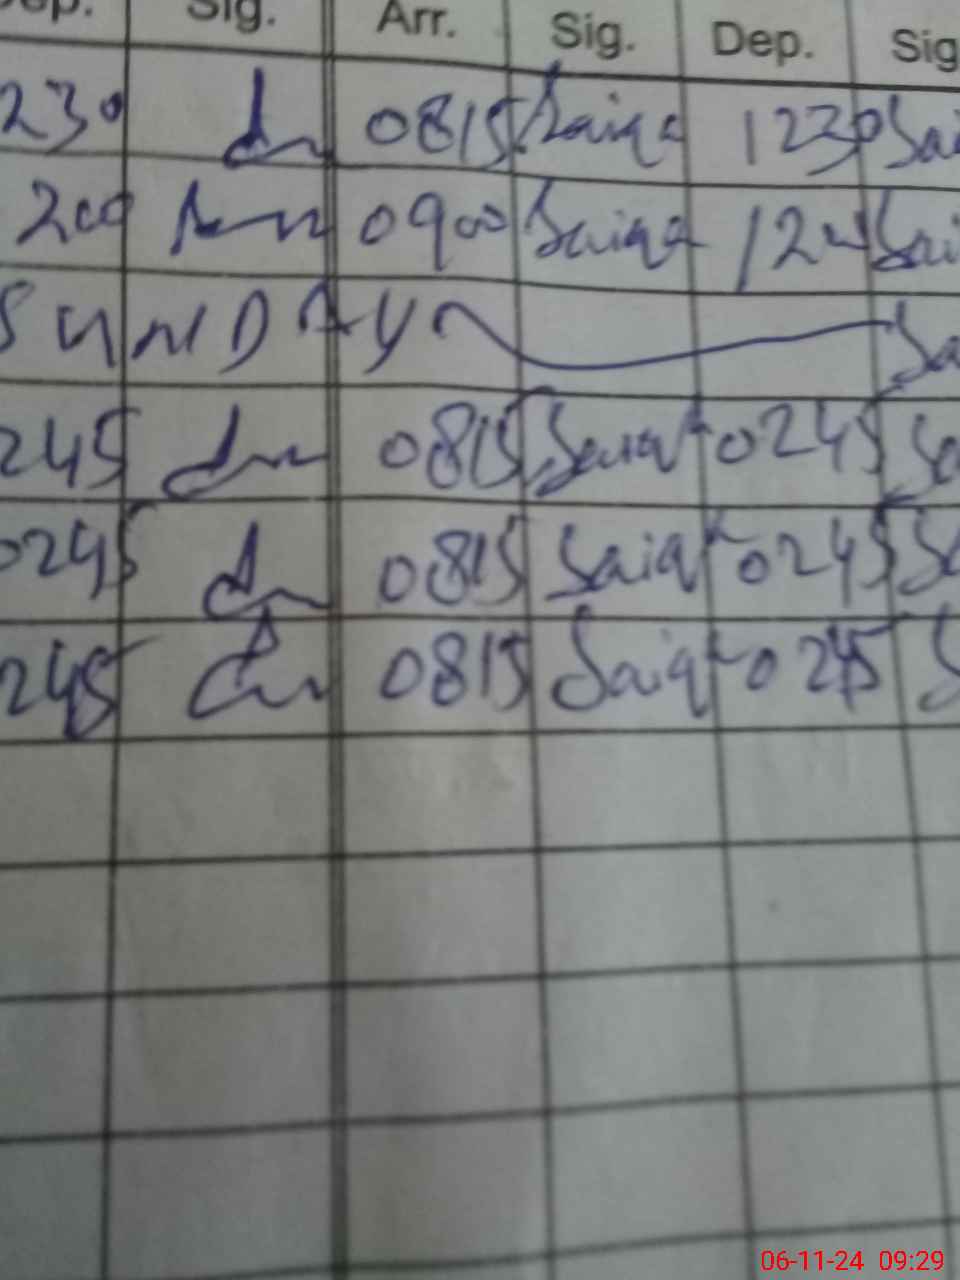 Dep. Sig. Arr. Sig. Dep. Sig
230 0815 Saiqa 1230 Sai
200 0900 Saiqa 1200 Sai
SUNDAY Sa
245 0815 Saiqa 0245 Sa
0245 0815 Saiqa 0245 Sa
245 0815 Saiqa 0245 S
06-11-24 09:29